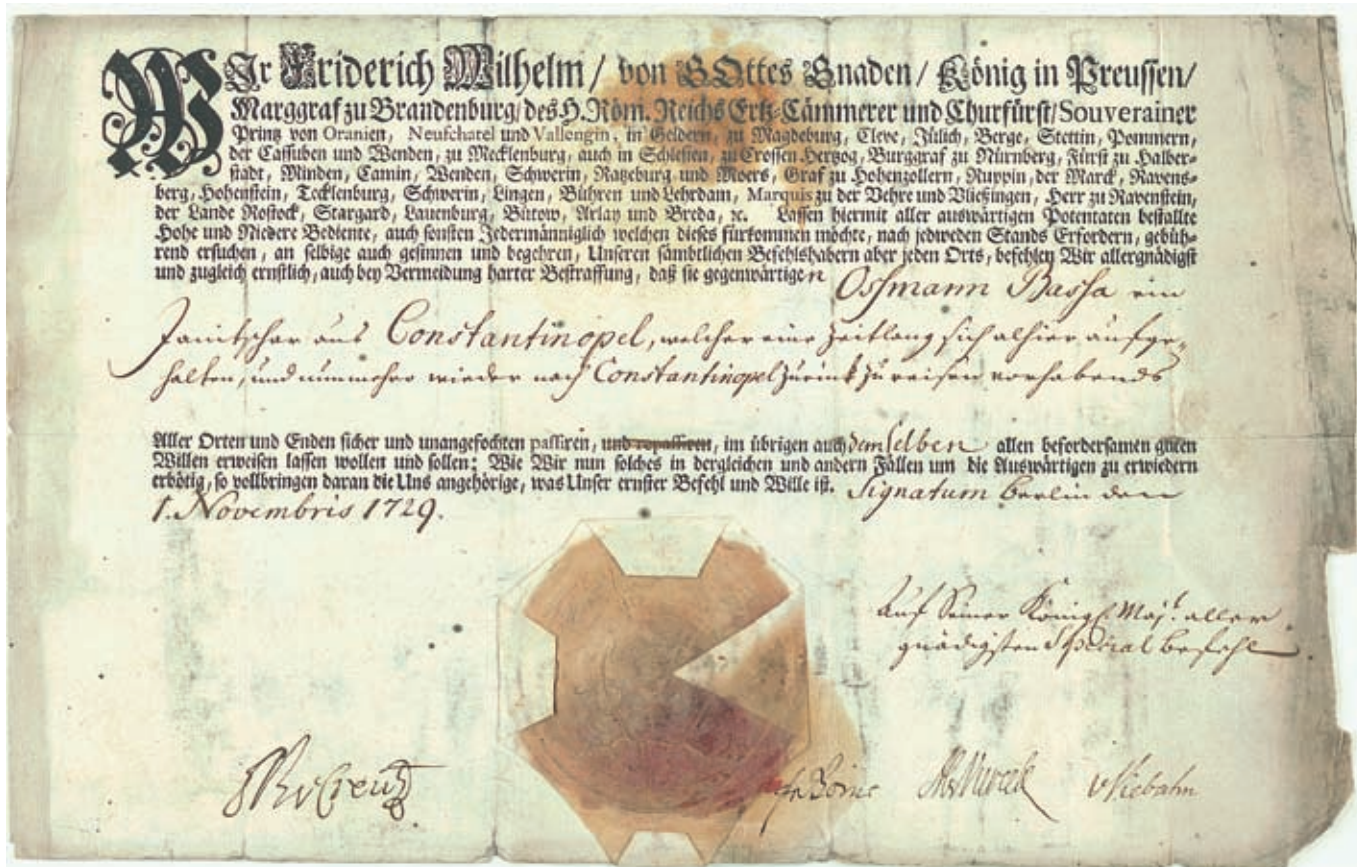 WIr Friderich Wilhelm / von GOttes Gnaden / König in Preussen /
Marggraf zu Brandenburg / des H. Röm. Reichs Ertz-Cämmerer und Churfürst / Souverainer
Printz von Oranien, Neufchatel und Vallengin, in Geldern, zu Magdeburg, Cleve, Jülich, Berge, Stettin, Pommern,
der Cassuben und Wenden, zu Mecklenburg, auch in Schlesien, zu Crossen Hertzog, Burggraf zu Nürnberg, Fürst zu Halber-
stadt, Minden, Camin, Wenden, Schwerin, Ratzeburg und Moers, Graf zu Hohenzollern, Ruppin, der Marck, Ravens-
berg, Hohenstein, Tecklenburg, Schwerin, Lingen, Bühren und Lehrdam, Marquis zu der Vehre und Vließingen, Herr zu Ravenstein,
der Lande Rostock, Stargard, Lauenburg, Bütow, Arlay und Breda, ꝛc. Lassen hiermit aller auswärtigen Potentaten bestallte
Hohe und Niedere Bediente, auch sonsten Jedermänniglich welchen dieses fürkommen möchte, nach jedweden Stands Erfordern, gebüh-
rend ersuchen, an selbige auch gesinnen und begehren, Unseren sämbtlichen Befehlshabern aber jeden Orts, befehlen Wir allergnädigst
und zugleich ernstlich, auch bey Vermeidung harter Bestraffung, daß sie gegenwärtigen Ossmann Bassa ein
Janitschar aus Constantinopel, welcher eine Zeitlang sich alhier aufge-
halten, und nunmehro wieder nach Constantinopel zurück zu reisen vorhabends
Aller Orten und Enden sicher und unangefochten passiren, und repassiren, im übrigen auch demselben allen befordersamen guten
Willen erweisen lassen wollen und sollen: Wie Wir nun solches in dergleichen und andern Fällen um die Auswärtigen zu erwiedern
erbötig, so vollbringen daran die Uns angehörige, was Unser ernster Befehl und Wille ist. Signatum Berlin den
1. Novembris 1729.
Auf Seiner Königl. Maj. aller
gnädigsten Special Befehl
Creutz
vViebahn